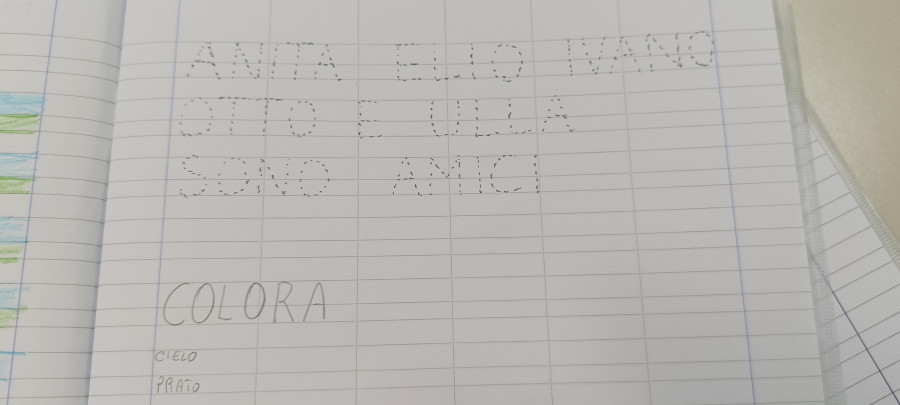 ANITA ELIO IVANO
OTTO E ULLA
SONO AMICI
COLORA
CIELO
PRATO